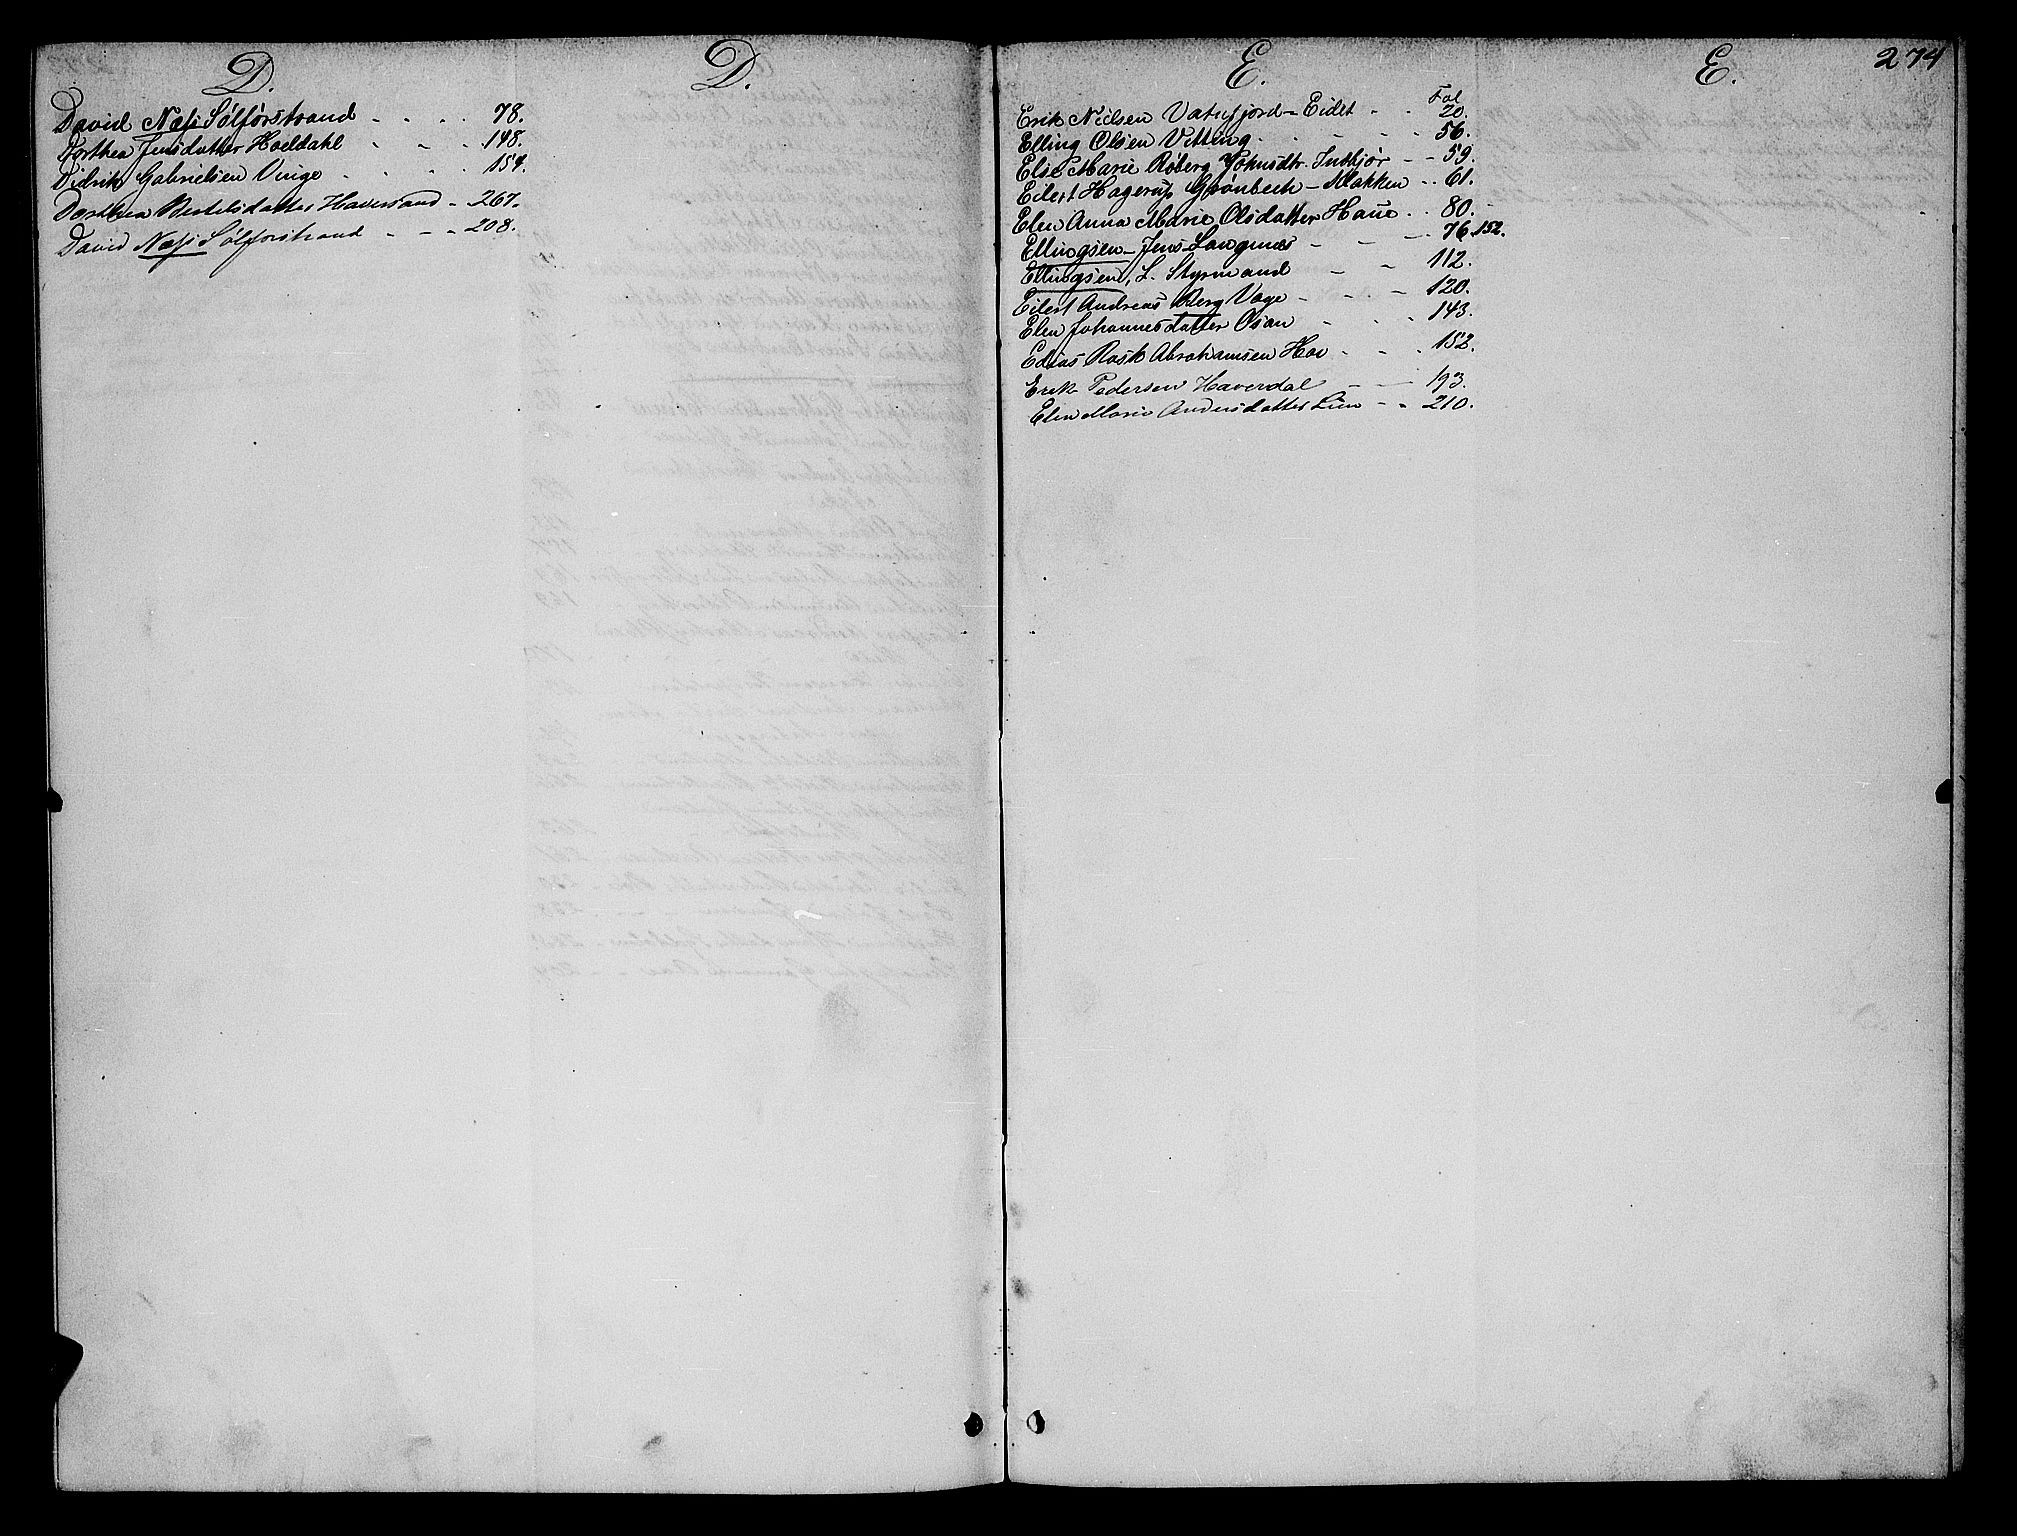 D.
David Næss Sølførstrand - - - - 78.
Dorthea Jensdatter Hoeldahl - - - 148.
Didrik Gabrielsen Vinge - - - - 154.
Dorthea Bertelsdatter Haversand - 267.
David Næss Sølførstrand - - - 208.
D.
E.
Fol
Erik Nielsen Vatnfjord - Eidet - - 20.
Elling Olsen Vetting - - - - 56.
Else Marie Røberg Johnsdtr. Indhjør - - 59.
Eilert Hagerup Grønbech - Klakken - - 61.
Elen Anna Marie Olsdatter Haue - - 80.
Ellingsen - Jens Langnæs - - - 76. 152.
Ellingsen, L. Styrmand - - 112.
Eilert Andreas Berg Vage - - - - 120.
Elen Johannesdatter Osan - - - 143.
Edias Rask Abrahamsen Hov - - - 152.
Erik Pedersen Haverdal - - 193.
Elen Marie Andersdatter Lien - - 210.
E.
274